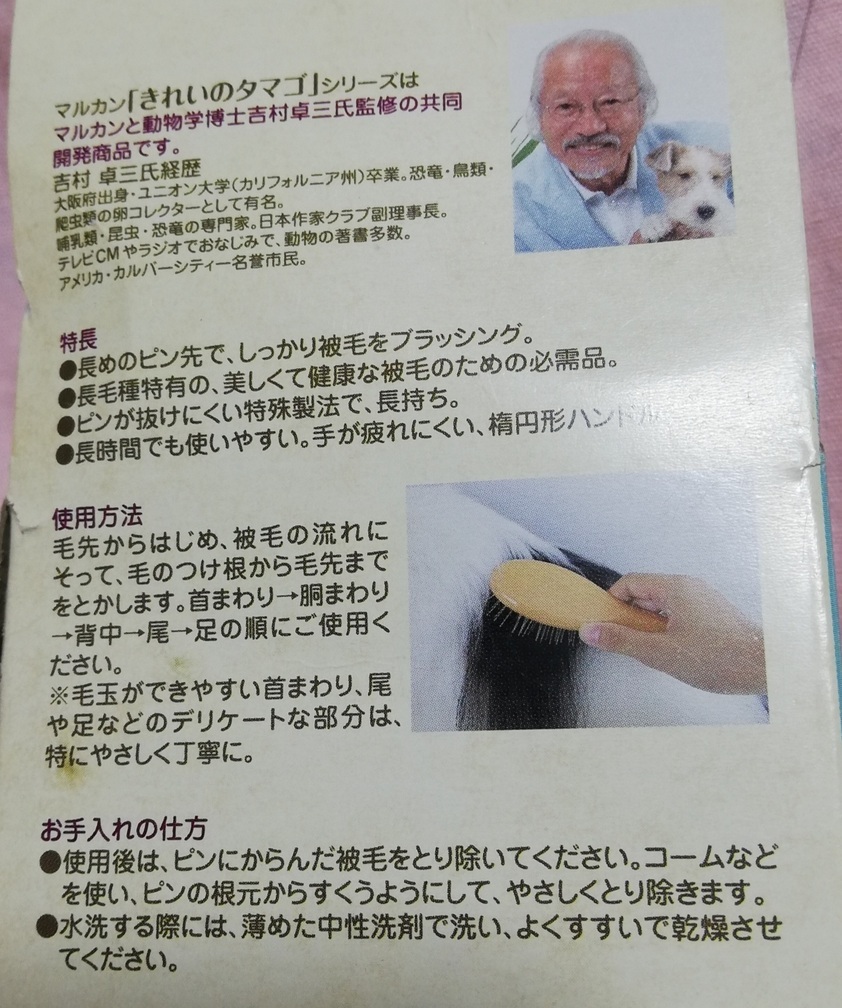 マルカン「きれいのタマゴ」シリーズは
マルカンと動物学博士吉村卓三氏監修の共同
開発商品です。
吉村 卓三氏経歴
大阪府出身・ユニオン大学(カリフォルニア州)卒業。恐竜・鳥類・
爬虫類の卵コレクターとして有名。
哺乳類・昆虫・恐竜の専門家。日本作家クラブ副理事長。
テレビCMやラジオでおなじみで、動物の著書多数。
アメリカ・カルバーシティー名誉市民。
特長
●長めのピン先で、しっかり被毛をブラッシング。
●長毛種特有の、美しくて健康な被毛のための必需品。
●ピンが抜けにくい特殊製法で、長持ち。
●長時間でも使いやすい。手が疲れにくい、楕円形ハンドル
使用方法
毛先からはじめ、被毛の流れに
そって、毛のつけ根から毛先まで
をとかします。首まわり→胴まわり
→背中→尾→足の順にご使用く
ださい。
※毛玉ができやすい首まわり、尾
や足などのデリケートな部分は、
特にやさしく丁寧に。
お手入れの仕方
●使用後は、ピンにからんだ被毛をとり除いてください。コームなど
を使い、ピンの根元からすくうようにして、やさしくとり除きます。
●水洗する際には、薄めた中性洗剤で洗い、よくすすいで乾燥させ
てください。